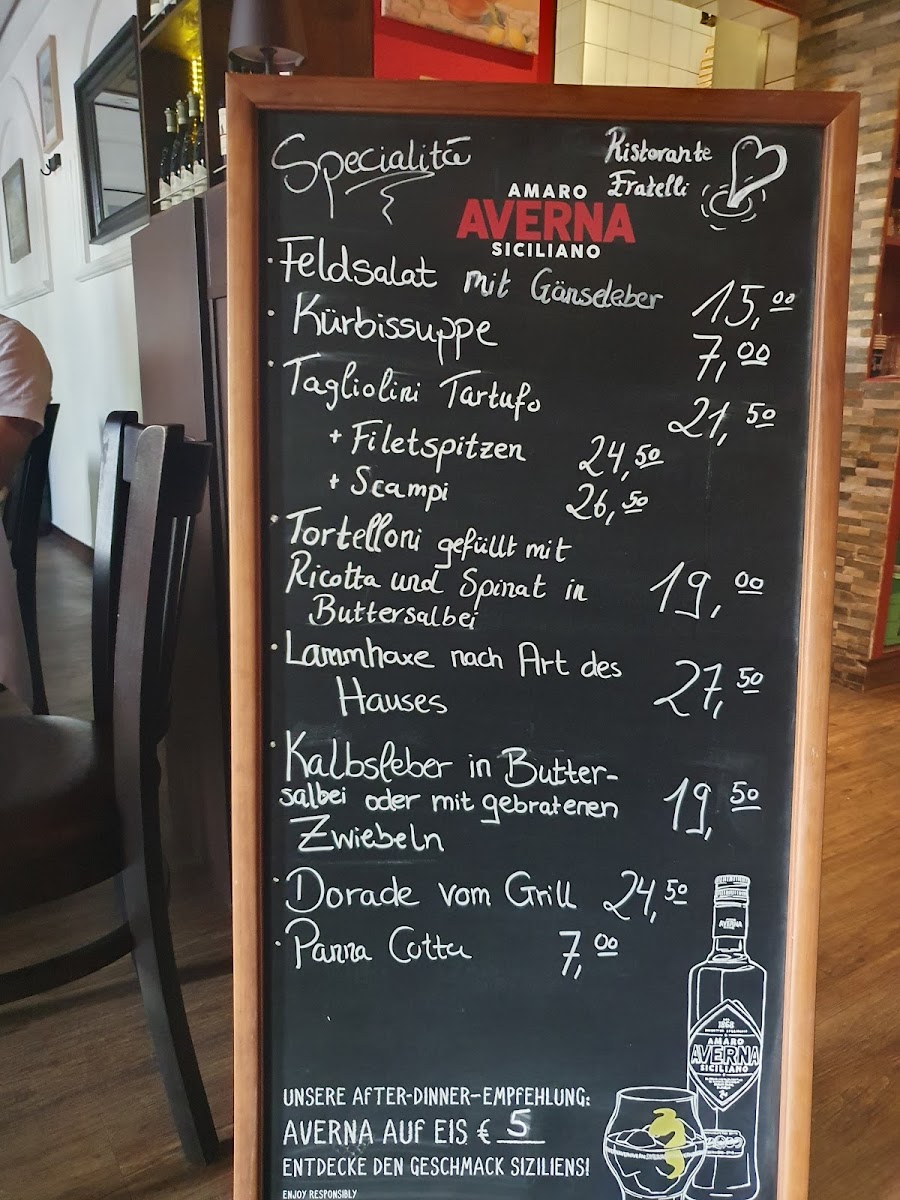 Specialità
Ristorante
Fratelli
AMARO
AVERNA
SICILIANO
· Feldsalat mit Gänseleber 15,00
· Kürbissuppe 7,00
· Tagliolini Tartufo 21,50
+ Filetspitzen 24,50
+ Scampi 26,50
· Tortelloni gefüllt mit
Ricotta und Spinat in 19,00
Buttersalbei
· Lammhaxe nach Art des
Hauses 27,50
· Kalbsleber in Butter-
salbei oder mit gebratenen 19,50
Zwiebeln
· Dorade vom Grill 24,50
· Panna Cotta 7,00
AVERNA
1868
AMARO
AVERNA
SICILIANO
UNSERE AFTER-DINNER-EMPFEHLUNG:
AVERNA AUF EIS € 5
ENTDECKE DEN GESCHMACK SIZILIENS!
ENJOY RESPONSIBLY